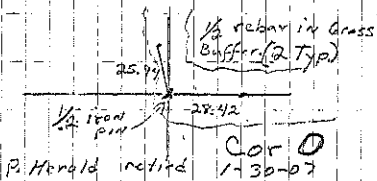 1/2 rebar in Grass
Buffer (2 Typ.)
25.94
28.42
1/2 iron
pin
Cor O
P. Herold retied 1-30-07